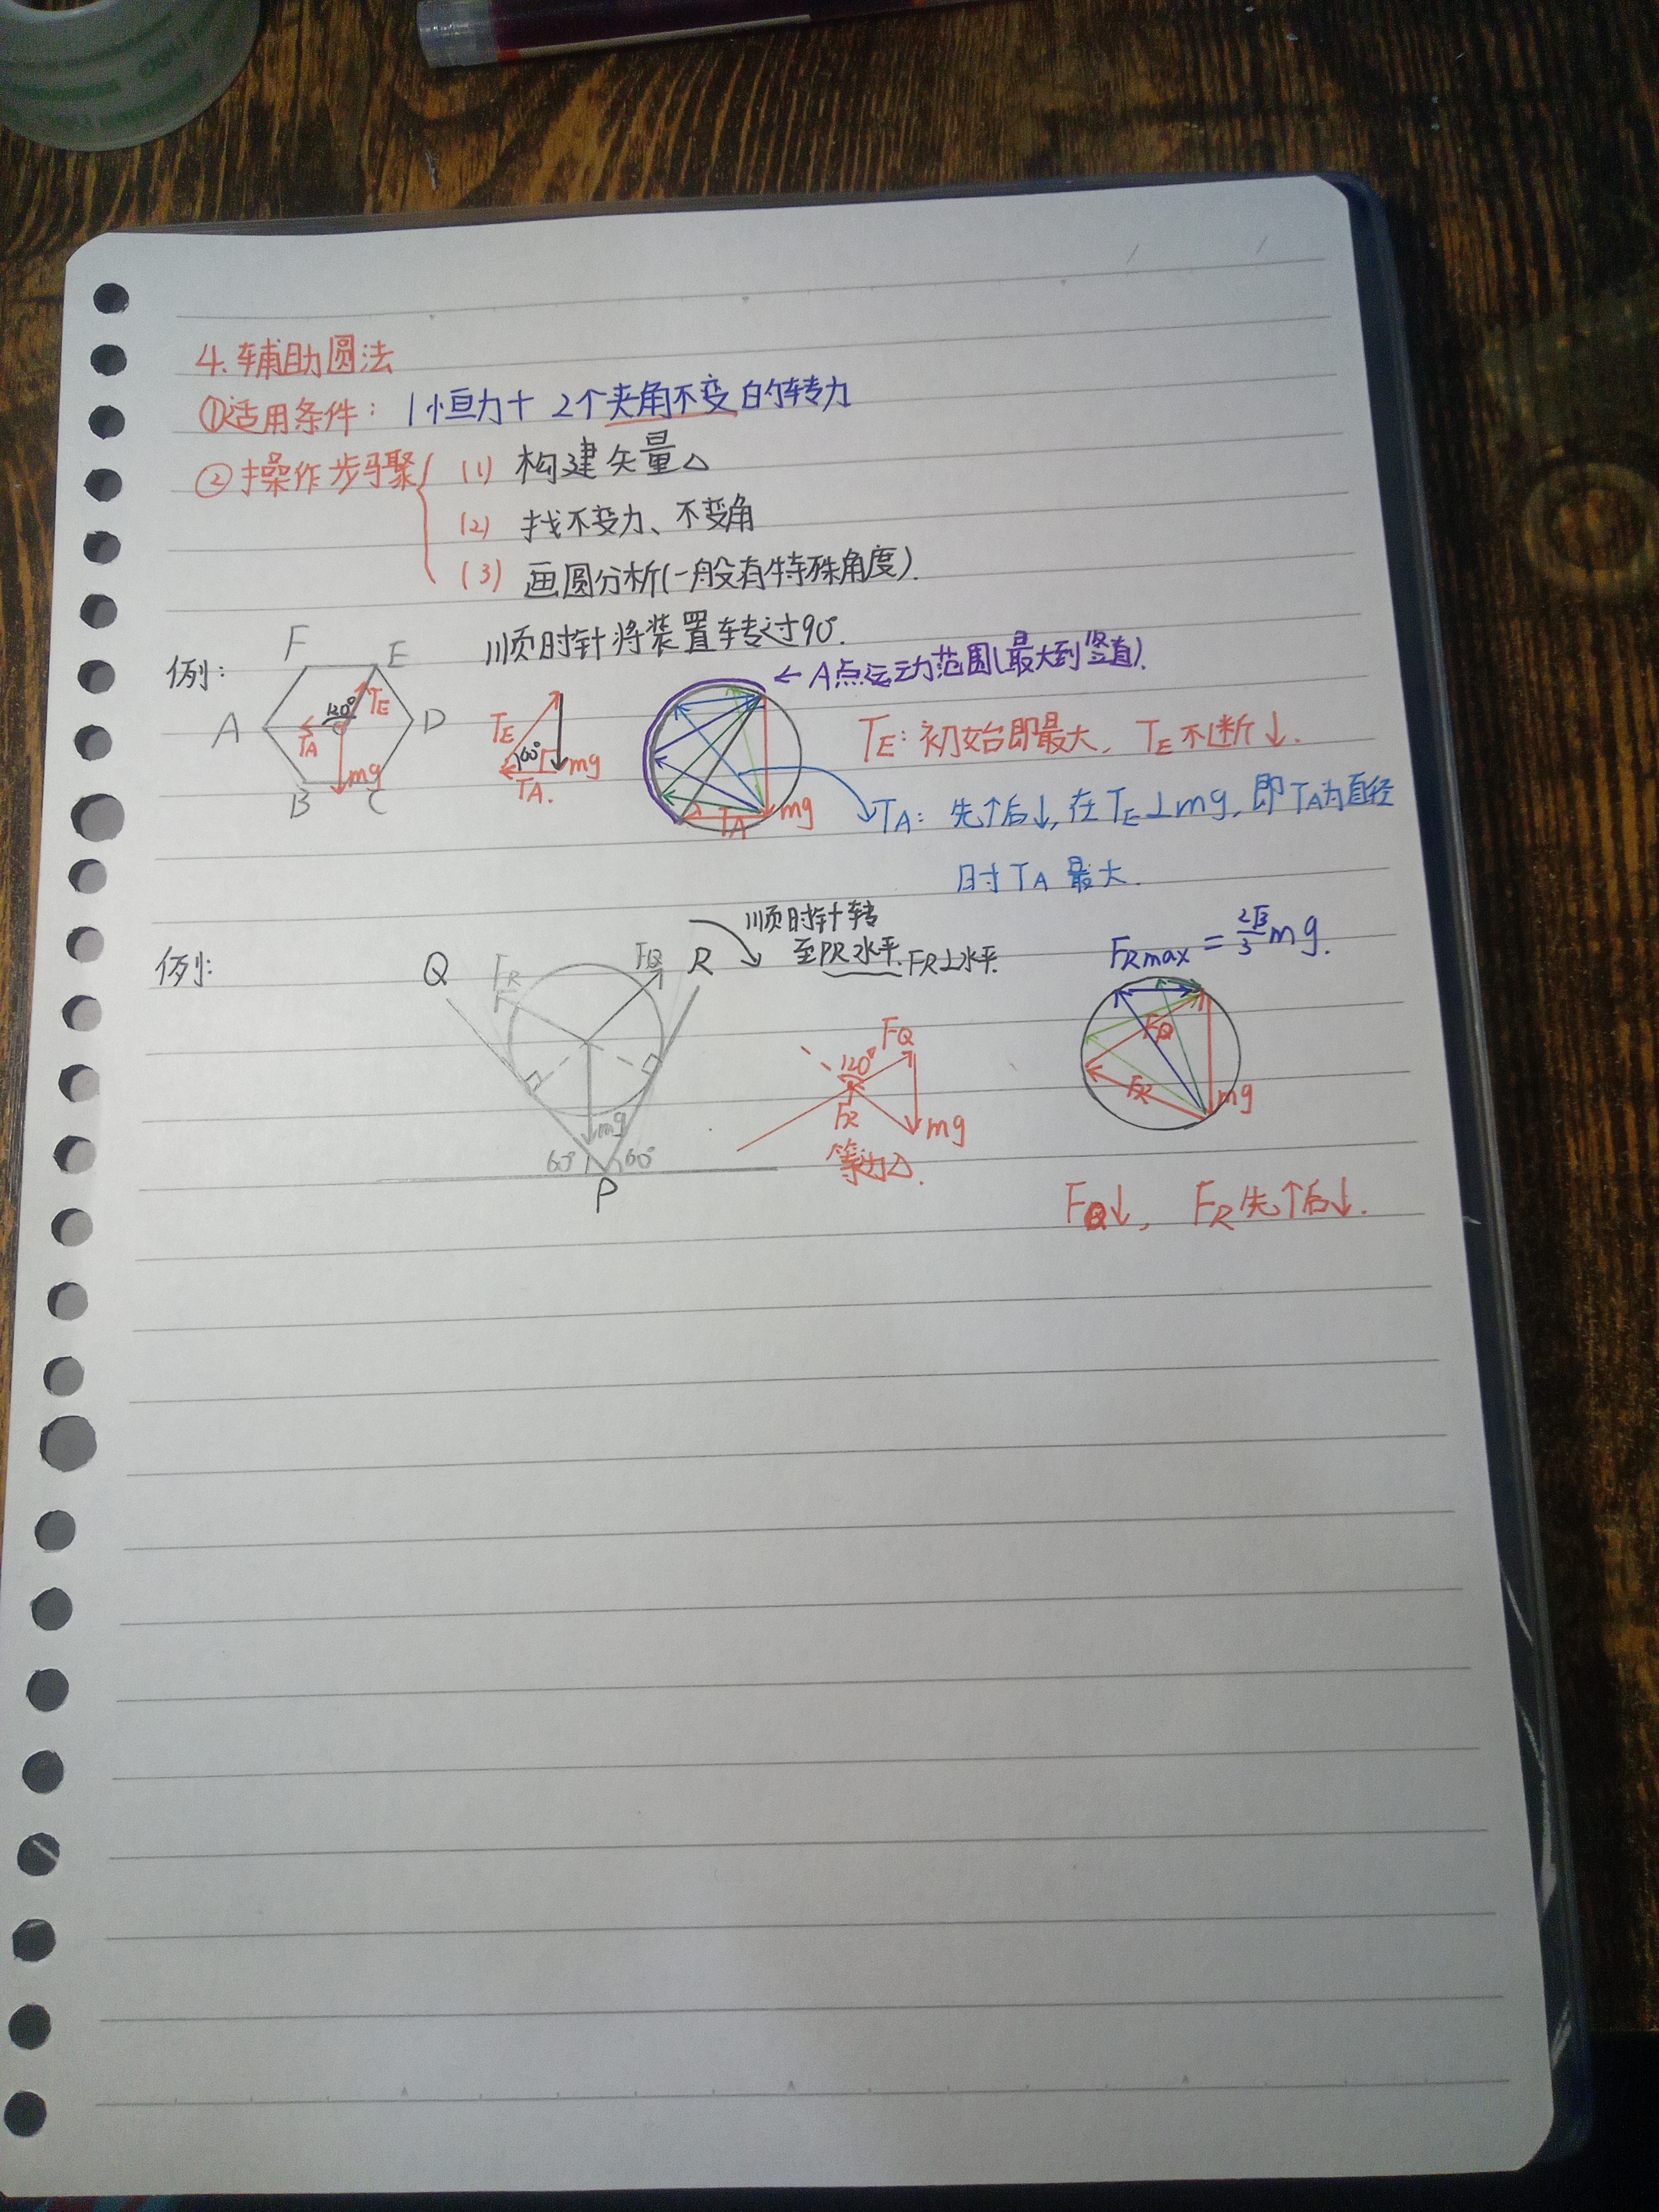 4. 辅助圆法
①适用条件: 1恒力+ 2个夹角不变的转力
②操作步骤 (1) 构建矢量△
(2) 找不变力、不变角
(3) 画圆分析(一般有特殊角度).
例: 顺时针将装置转过90°.
F E
A D
B C
120° TE
TA
mg
TE
60° mg
TA.
TA mg
←A点运动范围(最大到竖直).
TE: 初始即最大, TE不断↓.
TA: 先↑后↓, 在TE⊥mg, 即TA为直径
时TA最大.
例:
Q R
FR FQ
mg
60° 60°
P
顺时针转
至PR水平. FR⊥水平.
120° FQ
FR mg
等边△.
FRmax = 2√3/3 mg.
FQ
FR mg
FQ↓, FR先↑后↓.